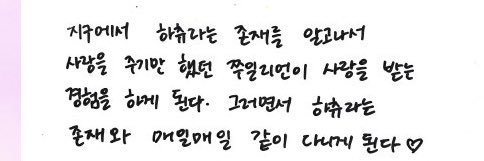 지구에서 하츄라는 존재를 알고나서
사랑을 주기만 했던 쭈일리언이 사랑을 받는
경험을 하게 된다. 그러면서 하츄라는
존재와 매일매일 같이 다니게 된다♡